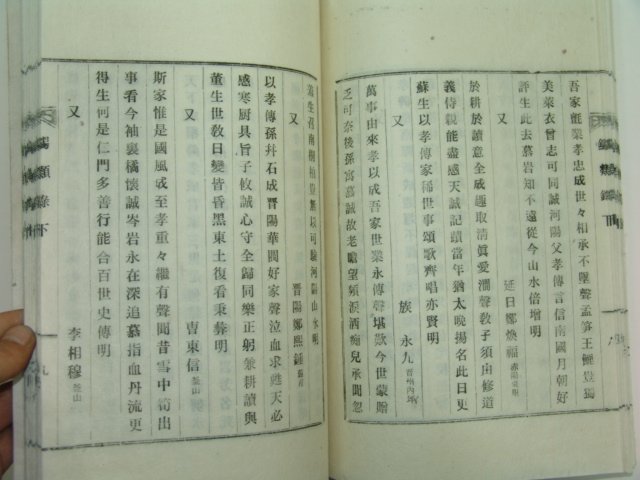 吾家氈業孝忠成世々相承不墜聲孟笋王鯉豈獨
美萊衣曾志可同誠河陽父孝傳言信南國月朝好
評生此去慕岩知不遠從今山水倍增明
又
延日鄭煥福
於耕於讀意全成趣取清眞愛澗聲敎子須由修道
義侍親能盡感天誠記蹟當年猶太晩揚名此日更
蘇生以孝傳家稀世事頌歌齊唱亦賢明
又
族永九
萬事由來孝以成吾家世業永傳聲堪歎今世蒙賸
芝可奈後孫寓慕誠故老瞻望頻淚酒痴兒承聞忽
無以可驗河陽山水明
又
晋陽鄭熙鍾
以孝傳孫幷石成晋陽華閥好家聲泣血求甦天必
感寒厨具旨子攸誠心守全歸同樂正躬兼耕讀與
董生世敎日變皆昏黑東土復看秉彛明
又
吉東信 釜山
斯家惟是國風成至孝重々繼有聲聞昔雪中筍出
事看今袖裏橘懷誠岑岩永在深追慕指血丹流更
得生何是仁門多善行能合百世史傳明
又
李相穆 釜山
類錄下
九